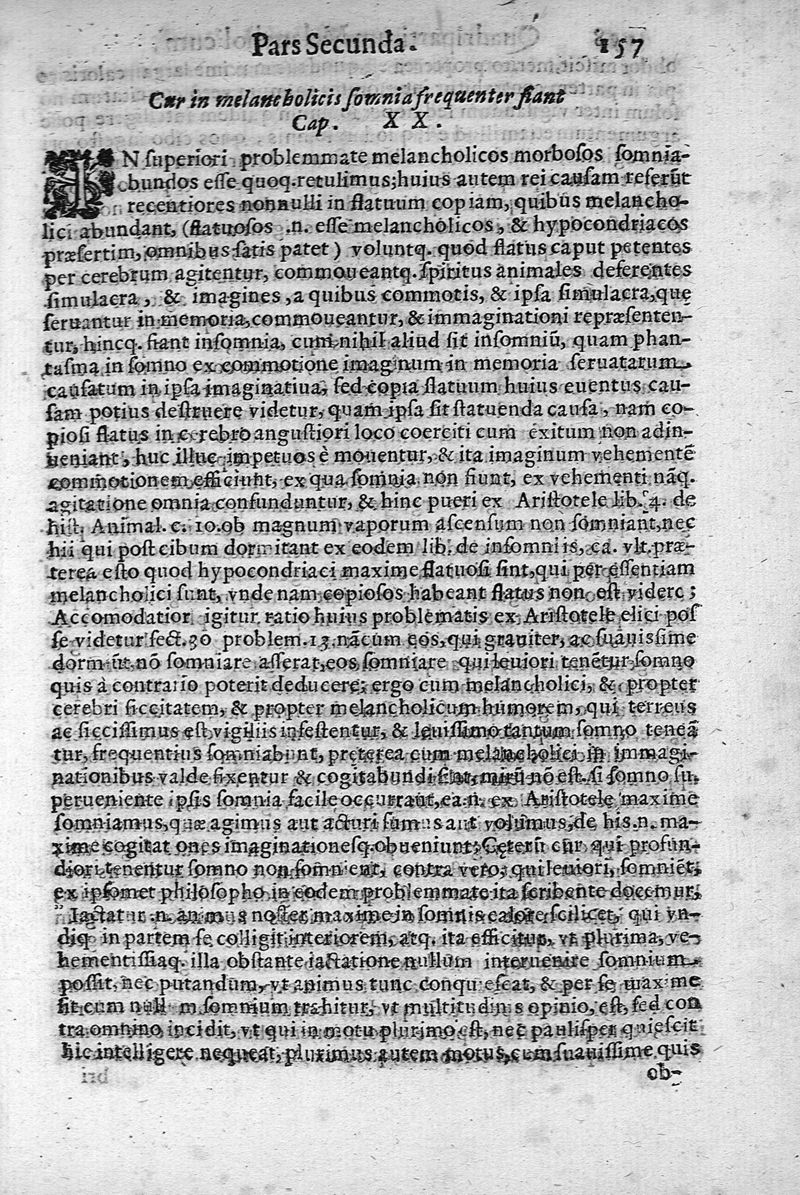 Pars Secunda. 157
Cur in melancholicis somnia frequenter fiant
Cap. X X.
IN superiori problemmate melancholicos morbosos somnia-
bundos esse quoq. retulimus; huius autem rei causam referũt
recentiores nonnulli in flatuum copiam, quibus melancho-
lici abundant, (flatuosos .n. esse melancholicos, & hypocondriacos
præsertim, omnibus satis patet) voluntq. quod flatus caput petentes
per cerebrum agitentur, commoueantq. spiritus animales deferentes
simulacra, & imagines, a quibus commotis, & ipsa simulacra, quę
seruantur in memoria, commoueantur, & immaginationi repræsenten-
tur, hincq. fiant insomnia, cum nihil aliud sit insomniũ, quam phan-
tasma in somno ex commotione imaginum in memoria seruatarum
causatum in ipsa imaginatiua, sed copia flatuum huius euentus cau-
sam potius destruere videtur, quam ipsa sit statuenda causa, nam co-
piosi flatus in cerebro angustiori loco coerciti cum exitum non adin-
ueniant, huc illuc impetuosè mouentur, & ita imaginum vehementẽ
commotionem efficiunt, ex qua somnia non fiunt, ex vehementi nãq.
agitatione omnia confunduntur, & hinc pueri ex Aristotele lib. 4. de
hist. Animal. c. 10. ob magnum vaporum ascensum non somniant, nec
hii qui post cibum dormitant ex eodem lib. de insomniis, ca. vlt. præ-
terea esto quod hypocondriaci maxime flatuosi sint, qui per essentiam
melancholici sunt, vnde nam copiosos habeant flatus non est videre;
Accomodatior igitur ratio huius problematis ex Aristotele elici pos
se videtur sect. 30 problem. 13. nã cum eos, qui grauiter, ac suauissime
dormiũt nõ somniare asserat, eos somniare qui leuiori tenẽtur somno
quis à contrario poterit deducere; ergo cum melancholici, & propter
cerebri siccitatem, & propter melancholicum humorem, qui terreus
ac siccissimus est vigiliis infestentur, & leuissimo tantum somno teneã
tur, frequentius somniabunt, preterea cum melancholici in immagi-
nationibus valde fixentur & cogitabundi sint, mirũ nõ est. si somno su
perueniente ipsis somnia facile occurrant, ea .n. ex Aristotele maxime
somniamus, quæ agimus aut acturi sumus aut volumus, de his .n. ma-
xime cogitationes imaginationesq. obueniunt; Ceterũ cur, qui profun-
diori tenentur somno non somnient, contra vero, qui leuiori, somniẽt,
ex ipsomet philosopho in eodem problemmate ita scribente docemur;
" Iactatur .n. animus noster maxime in somnis calore scilicet, qui vn-
diq. in partem se colligit interiorem, atq. ita efficitur, vt plurima, ve-
hementissiaq. illa obstante iactatione nullum interuenire somnium
possit, nec putandum, vt animus tunc conquiescat, & per se maxime
sit cum null m somnium trahitur, vt multitudinis opinio, est, sed con
tra omnino incidit, vt qui in motu plurimo est, nec paulisper quiescit
hic intelligere nequeat, plurimus autem motus, cum suauissime quis
ob-